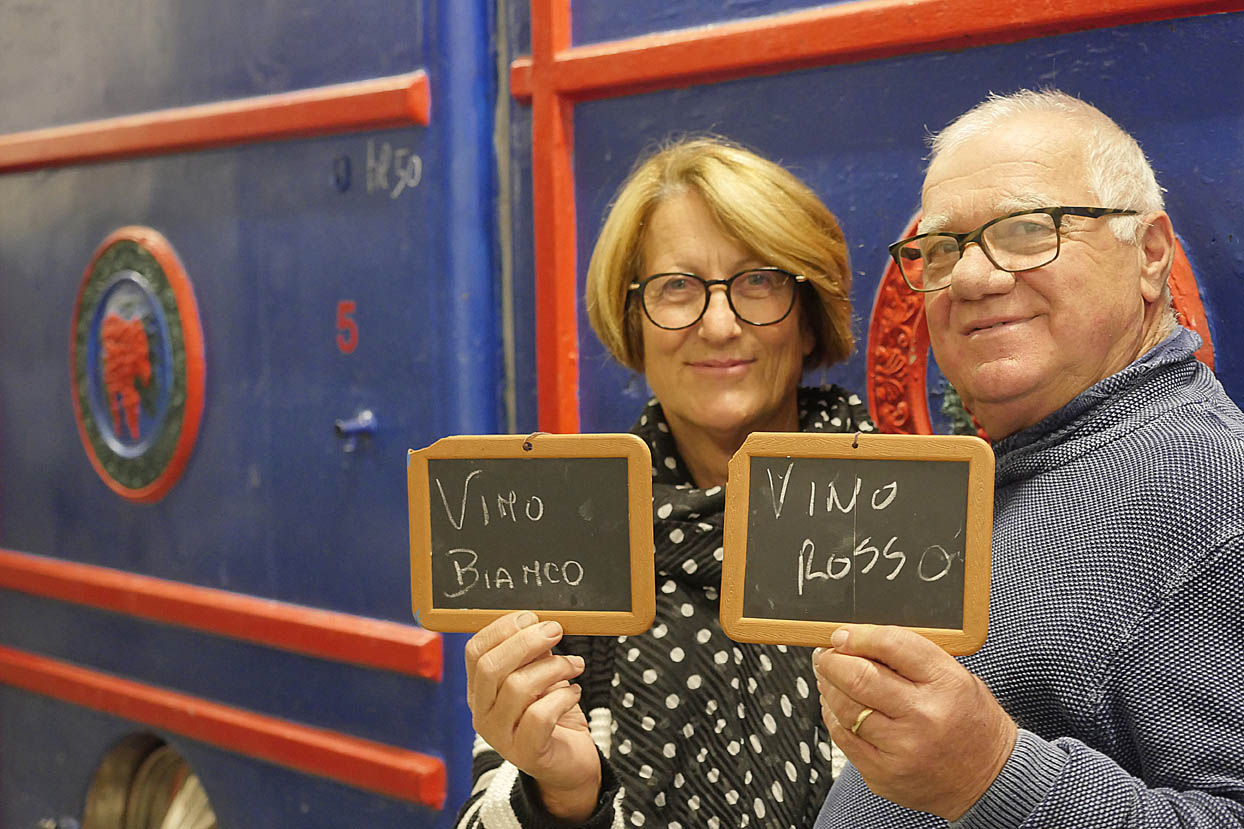 5
Vino
Bianco
Vino
Rosso